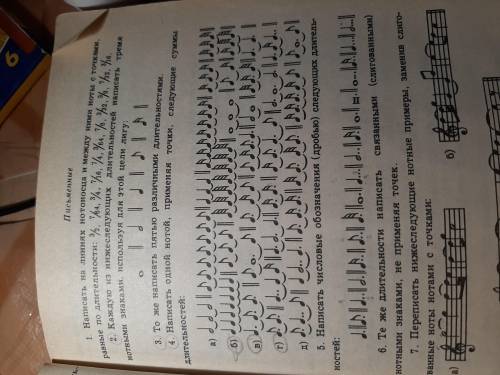 Письменные
1. Написать на линиях нотоносца и между ними ноты с точками,
равные по длительности: 3/2, 7/64, 3/4, 7/16, 7/4, 3/64, 7/8, 3/32, 3/8, 7/32, 3/16.
2. Каждую из нижеследующих длительностей написать тремя
нотными знаками, используя для этой цели лигу:
3. То же написать пятью различными длительностями.
4. Написать одной нотой, применяя точки, следующие суммы
длительностей:
а)
б)
в)
г)
д)
5. Написать числовые обозначения (дробью) следующих длитель-
ностей:
6. Те же длительности написать связанными (слигованными)
нотными знаками, не применяя точек.
7. Переписать нижеследующие нотные примеры, заменив слиго-
ванные ноты нотами с точками:
а)
б)